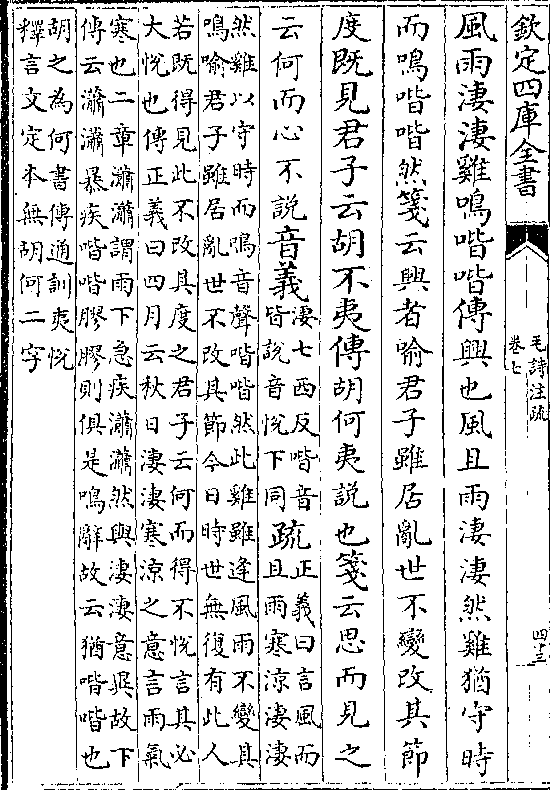 欽定四庫全書
毛詩注疏
卷七
四十三
風雨淒淒雞鳴喈喈傳興也風且雨淒淒然雞猶守時
而鳴喈喈然箋云興者喻君子雖居亂世不變改其節
度既見君子云胡不夷傳胡何夷説也箋云思而見之
云何而心不説音義
淒七西反喈音
皆説音悅下同
疏
正義曰言風而
且雨寒涼淒淒
然雞以守時而鳴音聲喈喈然此雞雖逢風雨不變其
鳴喻君子雖居亂世不改其節今日時世無復有此人
若既得見此不改其度之君子云何而得不悅言其必
大悅也傳正義曰四月云秋日淒淒寒涼之意言雨氣
寒也二章瀟瀟謂雨下急疾瀟瀟然與淒淒意異故下
傳云瀟瀟暴疾喈喈膠膠則俱是鳴辭故云猶喈喈也
胡之為何書傳通訓夷悅
釋言文定本無胡何二字